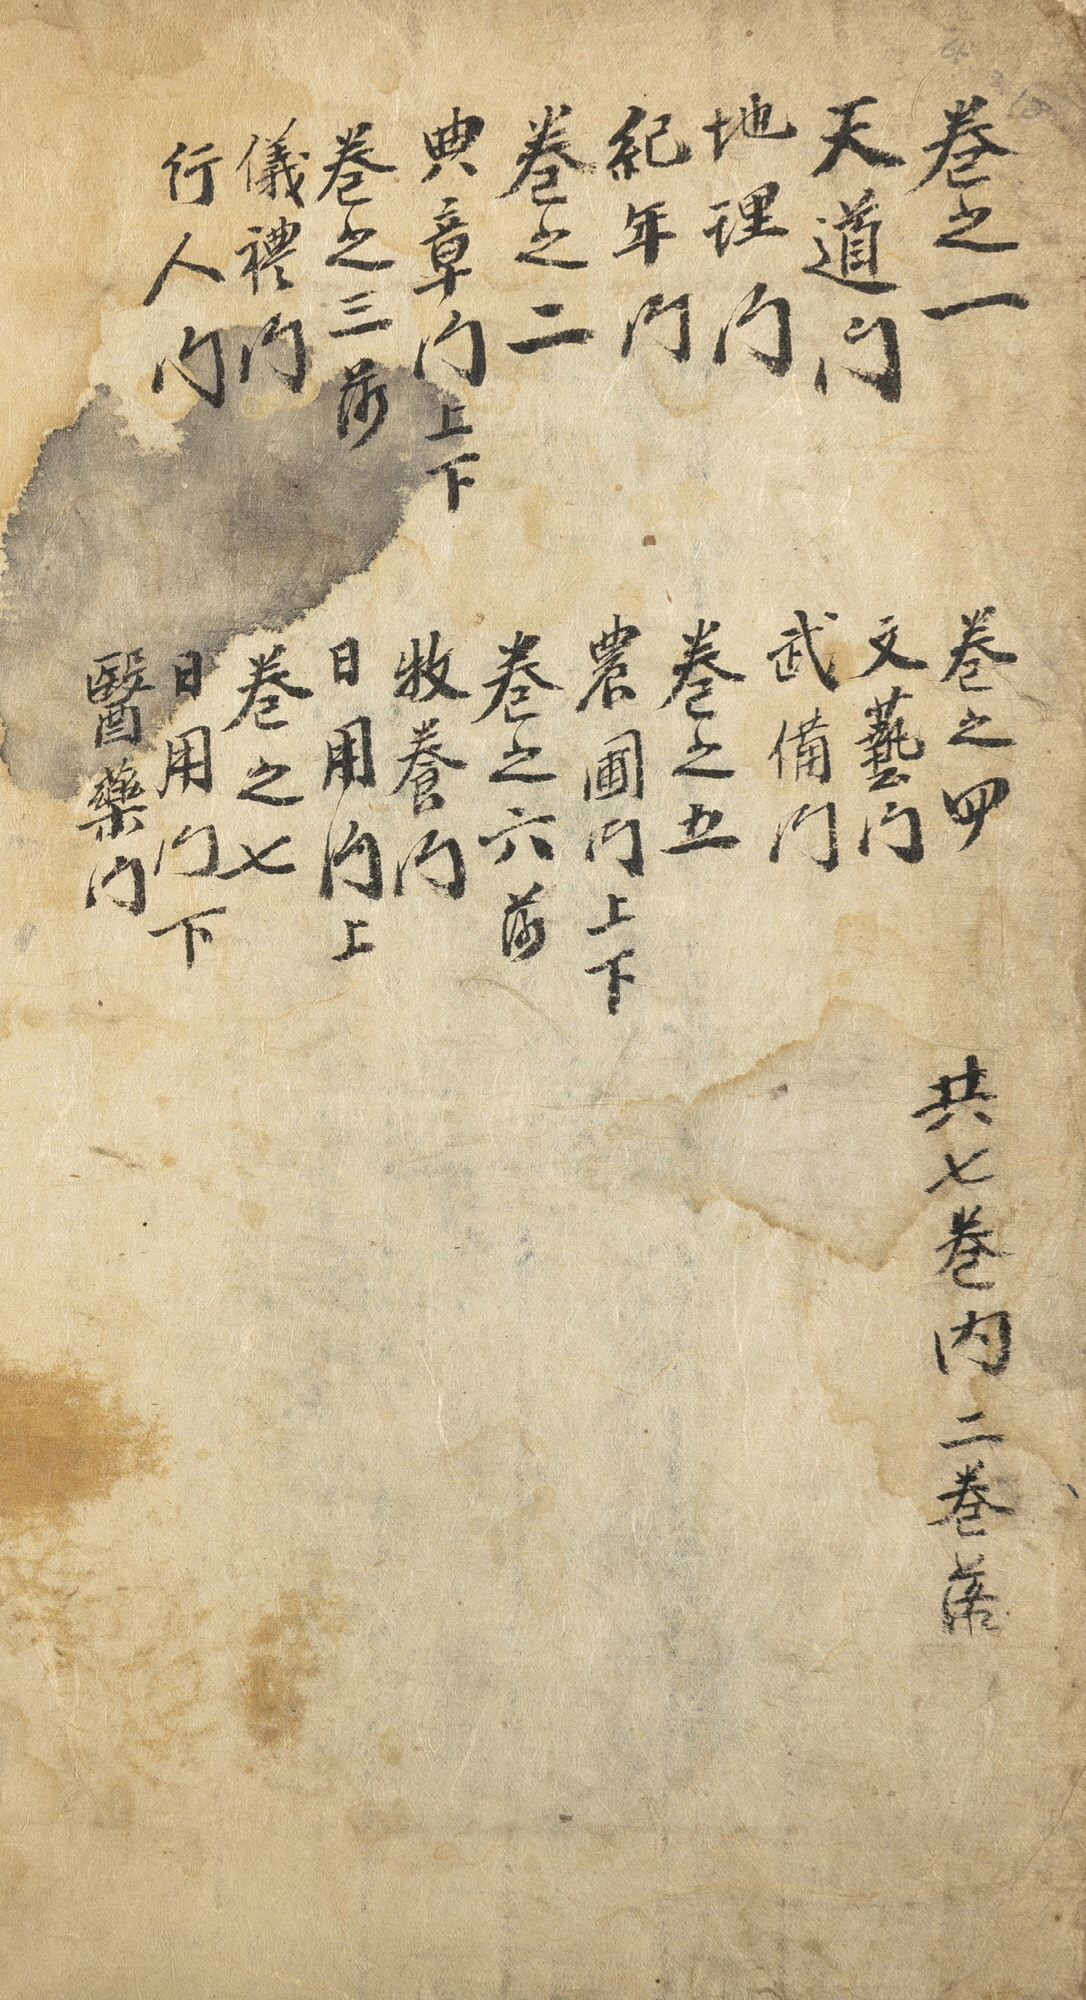 卷之一
天道门
地理门
紀年门
卷之二
典章门上下
卷之三落
儀禮门
行人门
卷之四
文藝门
武備门
卷之五
農圃门上下
卷之六落
牧養门
日用门上
卷之七
日用门下
醫藥门
共七卷内二卷落